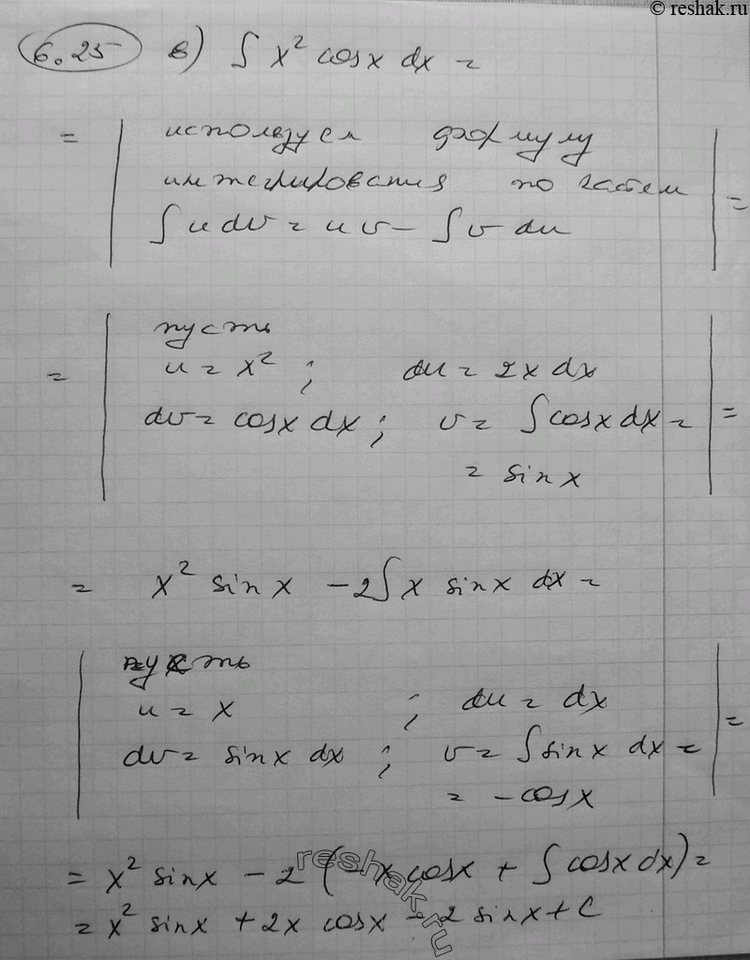 © reshak.ru
6.25 в) ∫ x² cosx dx =
= | используем формулу
интегрирования по частям | =
∫ u dv = uv - ∫ v du
= | пусть
u = x² ; du = 2x dx
dv = cosx dx ; v = ∫ cosx dx = | =
= sin x
= x² sin x - 2∫ x sinx dx =
пусть
u = x ; du = dx
dv = sinx dx ; v = ∫ sinx dx = | =
= - cosx
= x² sinx - 2 (-x cosx + ∫ cosx dx) =
= x² sinx + 2x cosx - 2 sinx + C
reshak.ru